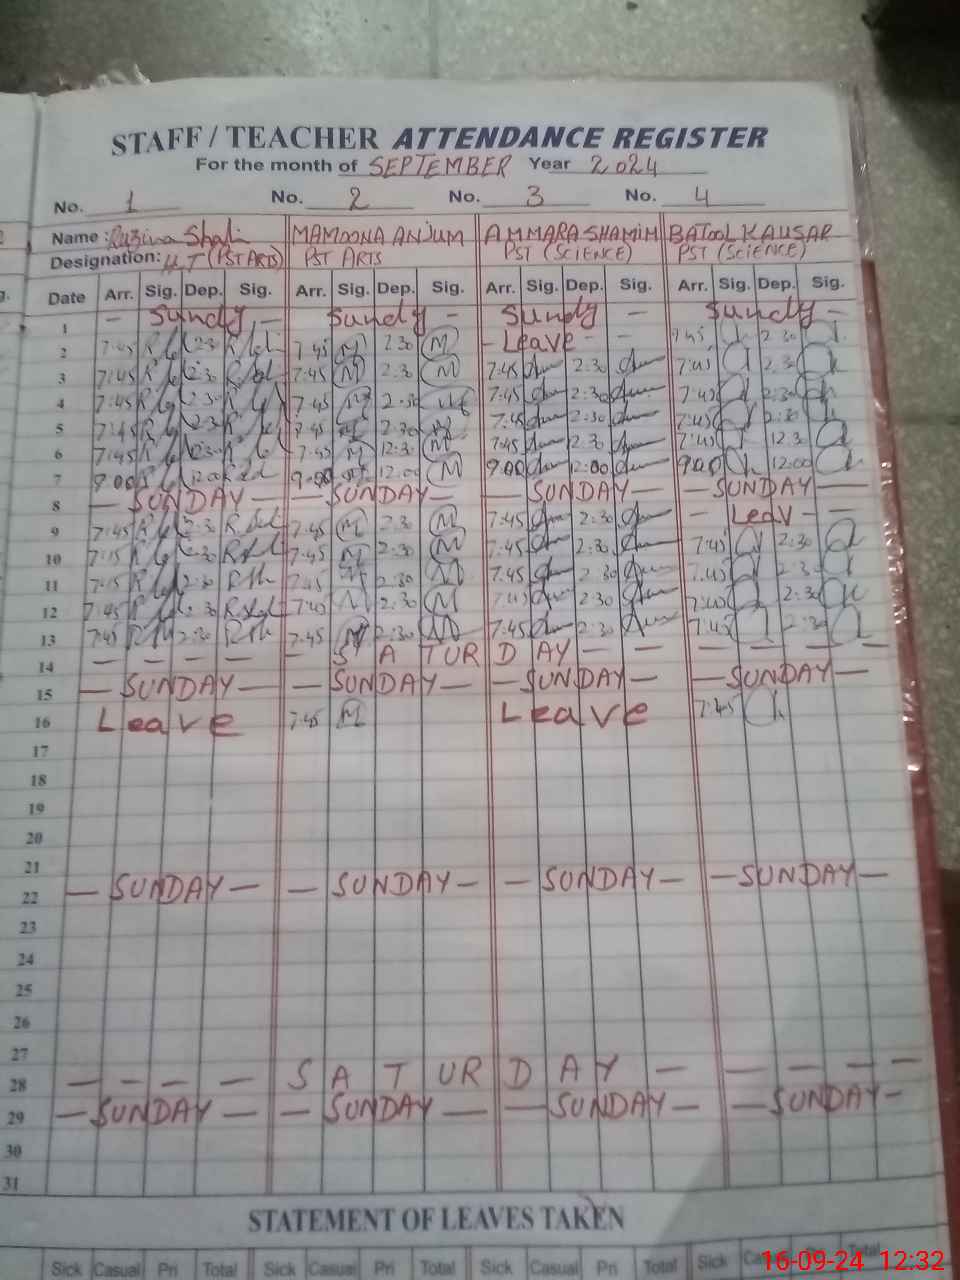 STAFF / TEACHER ATTENDANCE REGISTER
For the month of SEPTEMBER Year 2024
No. 1 No. 2 No. 3 No. 4
Name: MAMOONA ANJUM AMMARA SHAMIM BATOOL KAUSAR
Designation: H.T (PST ARTS) PST ARTS PST (SCIENCE) PST (SCIENCE)
Date Arr. Sig. Dep. Sig. Arr. Sig. Dep. Sig. Arr. Sig. Dep. Sig. Arr. Sig. Dep. Sig.
1 - Sundy - Sundy - Sundy - Sundy -
2 7:45 2:30 7:45 M 2:30 M - Leave - - 7:45 2:30
3 7:45 2:30 7:45 M 2:30 M 7:45 2:30 7:45 2:30
4 7:45 2:30 7:45 2:30 7:45 2:30 7:45 2:30
5 7:45 2:30 7:45 2:30 7:45 2:30 7:45 2:30
6 7:45 12:30 7:45 M 12:30 M 7:45 2:30 7:45 12:30
7 9:00 12:00 9:00 12:00 M 9:00 12:00 9:00 12:00
8 — SUNDAY — — SUNDAY — — SUNDAY — — SUNDAY —
9 7:45 2:30 7:45 M 2:30 M 7:45 2:30 - Leav - -
10 7:15 2:30 7:45 M 2:30 M 7:45 2:30 7:45 2:30
11 7:15 2:30 7:45 2:30 M 7:45 2:30 7:45 2:30
12 7:45 2:30 7:45 M 2:30 M 7:45 2:30 7:45 2:30
13 7:45 2:30 7:45 M 2:30 M 7:45 2:30 7:45 2:30
14 — — — — — S A TUR D AY — — — — — —
15 — SUNDAY — — SUNDAY — — SUNDAY — — SUNDAY —
16 Leave 7:45 M Leave 7:45
17
18
19
20
21
22 — SUNDAY — — SUNDAY — — SUNDAY — — SUNDAY —
23
24
25
26
27
28 — — — — S A T UR D A Y — — — — —
29 — SUNDAY — — SUNDAY — — SUNDAY — — SUNDAY —
30
31
STATEMENT OF LEAVES TAKEN
Sick Casual Pri Total Sick Casual Pri Total Sick Casual Pri Total Sick Total
16-09-24 12:32